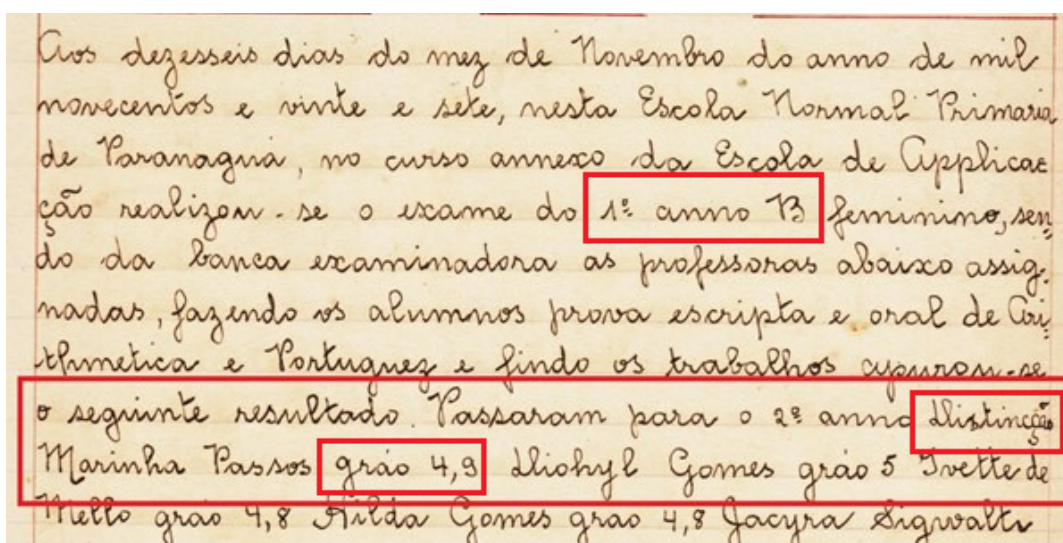 Aos dezesseis dias do mez de Novembro do anno de mil
novecentos e vinte e sete, nesta Escola Normal Primaria
de Paranaguá, no curso annexo da Escola de Applicac
ção realizou-se o exame do 1º anno B feminino, sen
do da banca examinadora as professoras abaixo assig
nadas, fazendo os alumnos prova escripta e oral de Ari
thmetica e Portuguez e findo os trabalhos apurou-se
o seguinte resultado. Passaram para o 2º anno Distincção
Marinha Passos gráo 4,9 Diohyl Gomes gráo 5 Ivette de
Mello gráo 4,8 Hilda Gomes gráo 4,8 Jacyra Sigwalt